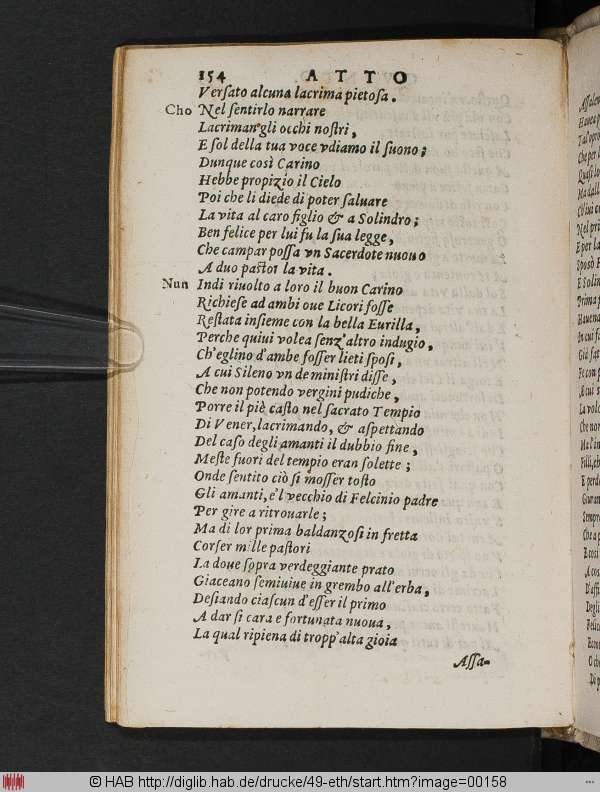 154 ATTO
Versato alcuna lacrima pietosa.
Cho Nel sentirlo narrare
Lacriman gli occhi nostri,
E sol della tua voce vdiamo il suono;
Dunque così Carino
Hebbe propizio il Cielo
Poi che li diede di poter saluare
La vita al caro figlio & a Solindro;
Ben felice per lui fu la sua legge,
Che campar possa vn Sacerdote nuouo
A duo pastor la vita.
Nun Indi riuolto a loro il buon Carino
Richiese ad ambi oue Licori fosse
Restata insieme con la bella Eurilla,
Perche quiui volea senz'altro indugio,
Ch'eglino d'ambe fosser lieti sposi,
A cui Sileno vn de ministri disse,
Che non potendo vergini pudiche,
Porre il piè casto nel sacrato Tempio
Di Vener, lacrimando, & aspettando
Del caso degli amanti il dubbio fine,
Meste fuori del tempio eran solette;
Onde sentito ciò si mosser tosto
Gli amanti, e'l vecchio di Felcinio padre
Per gire a ritrouarle;
Ma di lor prima baldanzosi in fretta
Corser mille pastori
La doue sopra verdeggiante prato
Giaceano semiuiue in grembo all'erba,
Desiando ciascun d'esser il primo
A dar si cara e fortunata nuoua,
La qual ripiena di tropp'alta gioia
Assa-
© HAB http://diglib.hab.de/drucke/49-eth/start.htm?image=00158